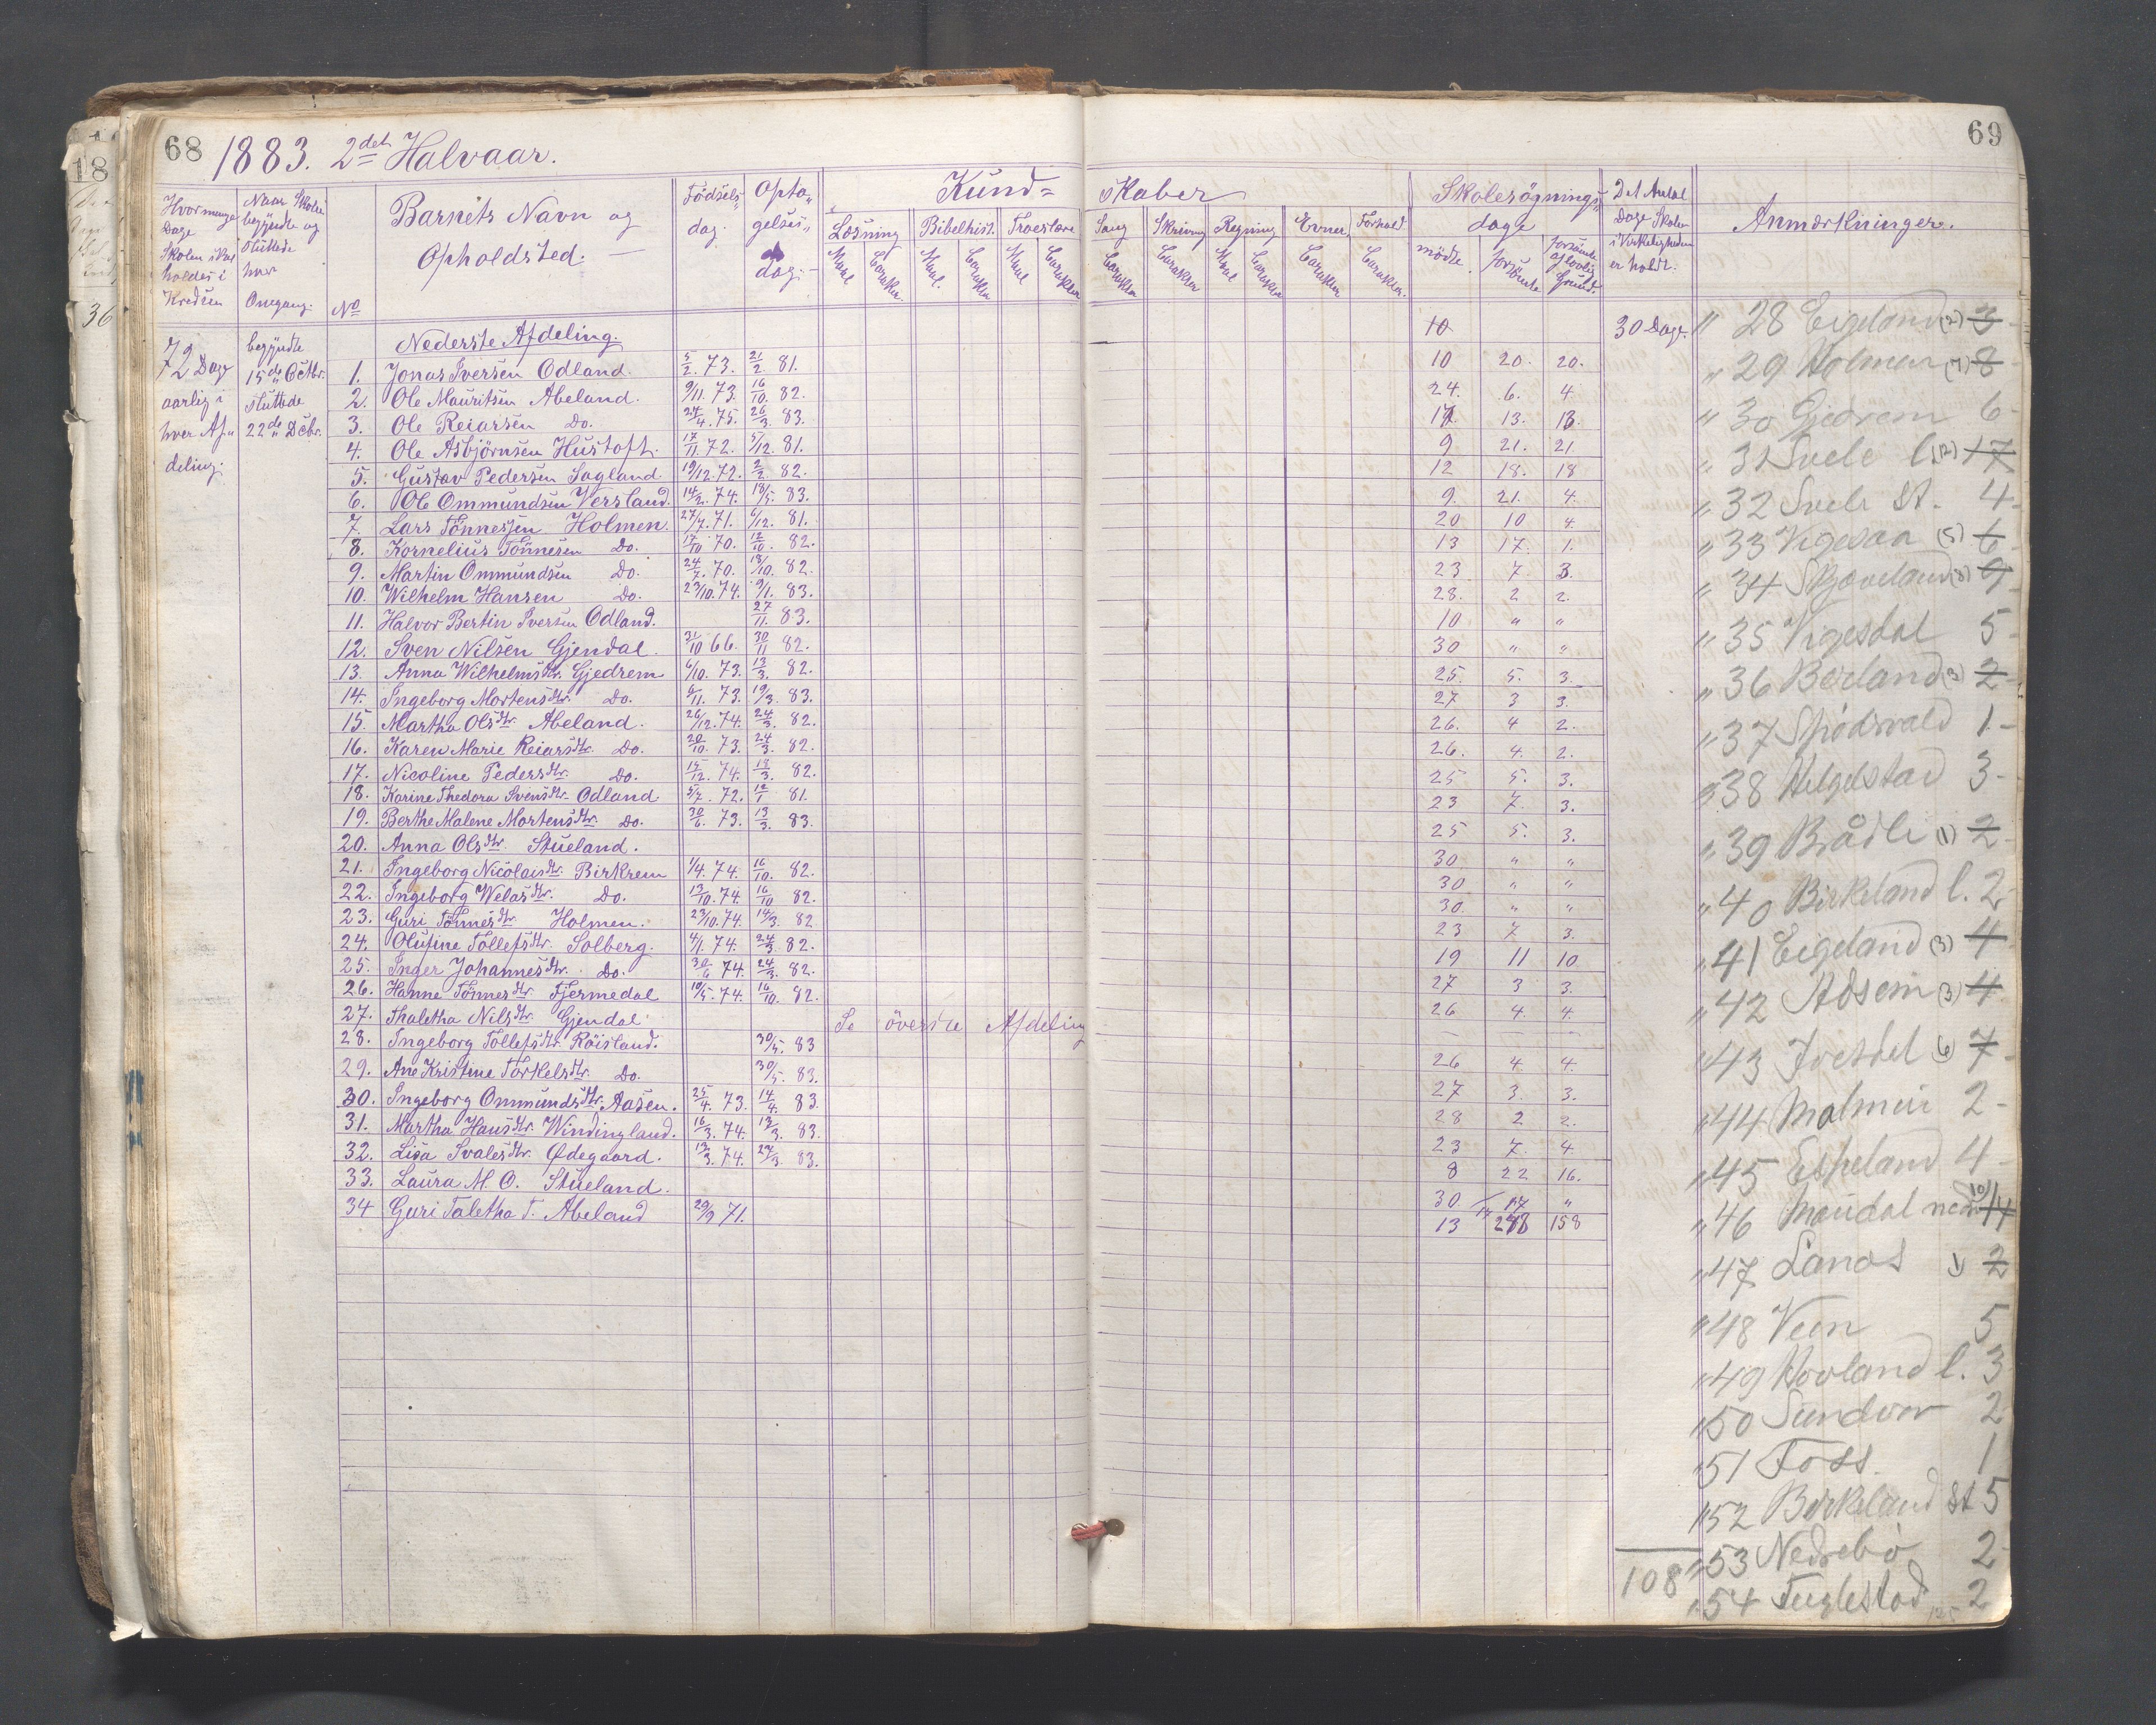 68 1883. 2det Halvaar. 69
Hvor mange Dage Skolen skal holdes i Kredsen
Naar Skolen begyndte og sluttede hver Omgang.
No
Barnets Navn og Opholdsted.
Födsels dag.
Opta- gelses dag.
Kund- skaber
Læsning Bibelhist. Troeslære Sang Skrivning Regning Evner Forhold
Maal Carakter. Maal. Carakter Maal Carakter Carakter Carakter Maal Carakter Carakter Carakter.
Skolesögnings dage
mödte. forsömte forsömte af lovlig Grund.
Det Antal Dage Skolen i Virkeligheden er holdt.
Anmærkninger.
72 Dage aarlig i hver Afdeling.
begyndte 15de Octbr. sluttede 22de Decbr.
Nederste Afdeling. 10 30 Dage.
1. Jonas Iversen Odland. 5/2. 73. 21/2 81. 10 20. 20.
2. Ole Mauritsen Abeland. 9/11. 73. 16/10. 82. 24. 6. 4
3. Ole Reiarsen Do. 24/4. 75. 26/3. 83. 17 13. 13.
4. Ole Asbjörnsen Hustoft. 17/11. 72. 5/12. 81. 9 21. 21
5. Gustav Pedersen Sagland. 19/12. 72. 2/2. 82. 12 18. 18
6. Ole Ommundsen Versland. 14/2. 74. 18/5. 83. 9. 21. 4.
7. Lars Tönnessen Holmen. 27/7. 71. 6/12. 81. 20 10 4.
8. Kornelius Tönnesen Do. 17/10 70. 12/10. 82. 13 17. 1.
9. Martin Ommundsen Do. 24/7. 70. 18/10. 82. 23 7. 3.
10. Wilhelm Hansen Do. 23/10. 74. 9/1. 83. 28. 2 2.
11. Halvor Bertin Iversen Odland. 27/11. 83. 10 " "
12. Sven Nilsen Gjendal. 31/10 66. 30/11 82. 30 " "
13. Anna Wilhelmsdtr. Gjedrem 6/10. 73. 13/3. 82. 25. 5. 3.
14. Ingeborg Mortensdtr. Do. 6/11. 73. 19/3. 83. 27 3 3.
15. Martha Olsdtr. Abeland. 26/12. 74. 24/3. 82. 26. 4 2.
16. Karen Marie Reiarsdtr. Do. 20/10. 73. 24/3. 82. 26. 4. 2.
17. Nicoline Pedersdtr. Do. 15/12. 74. 13/3. 82. 25 5. 3.
18. Karine Thedora Svensdtr. Odland. 5/7. 72. 12/1 81. 23 7. 3.
19. Berthe Malene Mortensdtr. Do. 30/6. 73. 13/3. 83. 25 5. 3.
20. Anna Olsdtr. Stueland. 30 " "
21. Ingeborg Nicolaisdtr. Birkrem 1/4. 74. 16/10. 82. 30 " "
22. Ingeborg Welasdtr. Do. 13/10. 74. 16/10 82. 30. " "
23. Guri Tönnesdtr. Holmen. 23/10. 74. 14/3. 82 23 7 3.
24. Olufine Tollefsdtr. Solberg. 4/1. 74. 24/3. 82. 19 11 10
25. Inger Johannesdtr. Do. 30/6 74. 24/3. 82. 27 3 3.
26. Hanne Tönnesdtr. Tjermedal 10/5. 74. 16/10. 82. 26 4. 4.
27. Thaletha Nilsdtr. Gjendal Se överste Afdeling
28. Ingeborg Tollefsdtr. Röisland. 30/5. 83 26 4. 4.
29. Ane Kristine Torkelsdtr. Do. 30/5. 83. 27 3. 3.
30. Ingeborg Ommundsdtr. Aasen. 25/4. 73. 14/4. 83. 28 2 2.
31. Martha Hansdtr. Windingland. 16/3. 74. 13/3. 83. 23 7. 4.
32. Lisa Svalesdtr. Ødegaard. 13/3. 74. 27/3. 83. 8 22 16.
33. Laura M. O. Stueland. 30. "
34 Guri Taletha T. Abeland 29/9 71. 13 17 158
" 28 Eigeland (2) 3
" 29 Holmen (7) 8
" 30 Gjedrem 6
" 31 Svele l. (12) 17
" 32 Svele St. 4
" 33 Vigesaa (5) 6
" 34 Skjæveland (8) 9
" 35 Vigesdal 5
" 36 Berland (3) 2
" 37 Spödsvold 1
" 38 Helgelstad 3
" 39 Brådli (1) 2
" 40 Birkeland l. 2
" 41 Eigeland (3) 4
" 42 Adsem (3) 4
" 43 Ivesdal (6) 7
" 44 Malmein 2
" 45 Espeland 4
" 46 Maudal 10 14
" 47 Lanos 2
" 48 Veen 5
" 49 Hovland l. 3
" 50 Sundvor 2
" 51 Foss. 1
" 52 Birkeland St 5
" 53 Nedrebö 2
" 54 Fuglestad 2
108
36
18